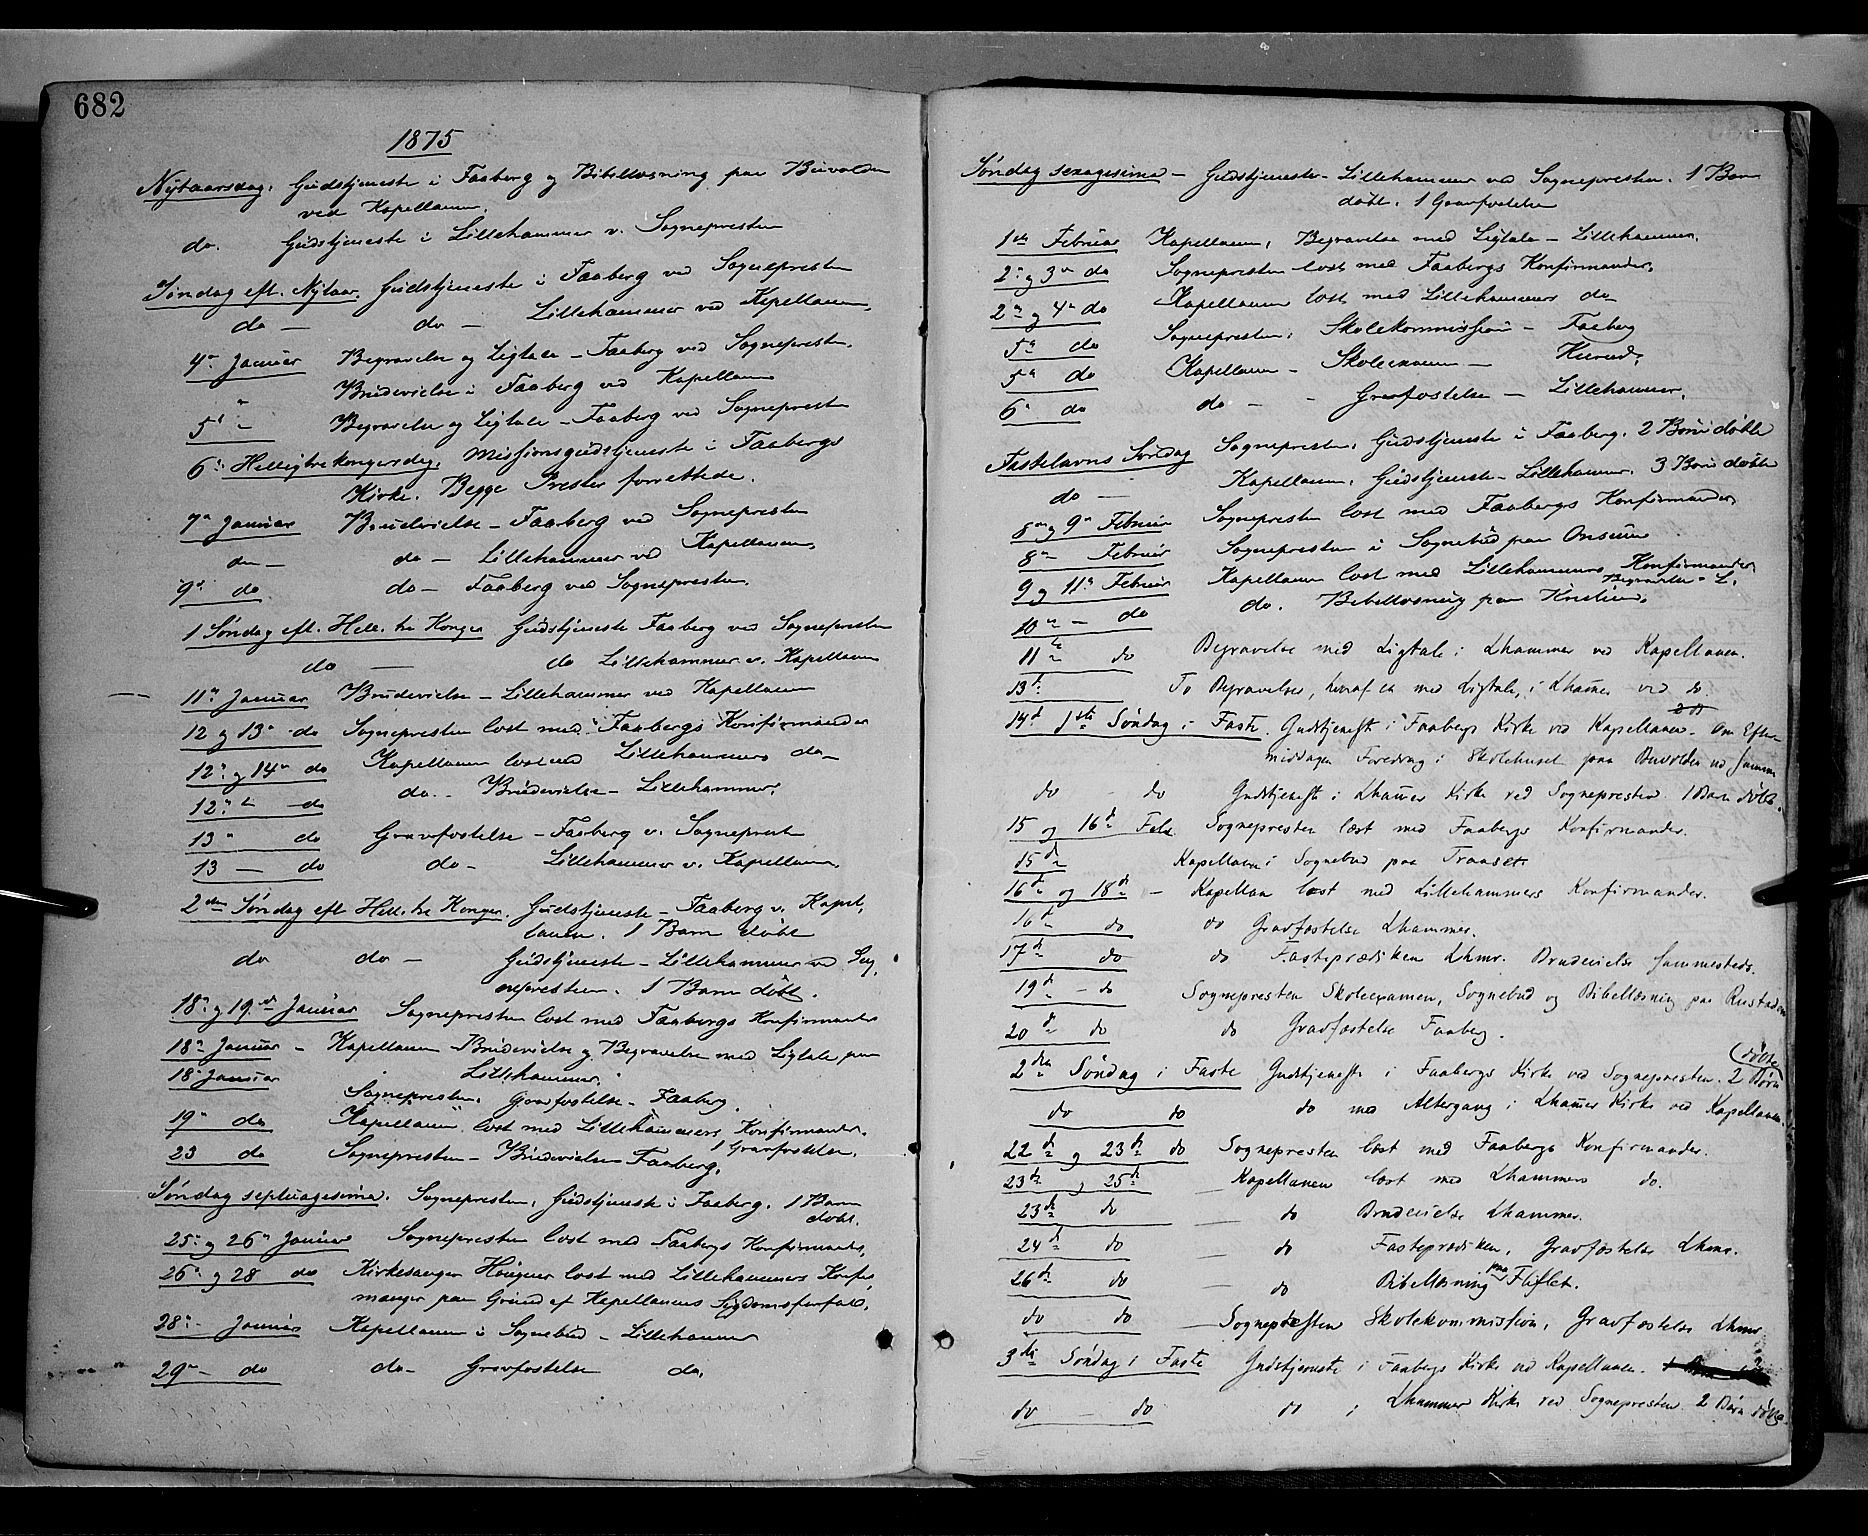 682
1875
Nytaarsdag. Gudstjeneste i Faaberg og Bibellæsning paa Buvolden
ved Kapellanen.
do. Gudstjeneste i Lillehammer v. Sognepresten
Søndag eft. Nytaar. Gudstjeneste i Faaberg ved Sognepresten
do — do — Lillehammer ved Kapellanen.
4de Januar Begravelse og Ligtale – Faaberg ved Sognepresten.
" Brudevielse i Faaberg ved Kapellanen
5te " Begravelse og Ligtale – Faaberg ved Sognepresten
6te Helligtrekongersdag. Missionsgudstjeneste i Faabergs
Kirke. Begge Prester forrettede.
7de Januar Brudevielse – Faaberg ved Sognepresten
do — do — Lillehammer ved Kapellanen.
9de do do — Faaberg ved Sognepresten.
1 Søndag eft. Hell. tre Konger Gudstjeneste Faaberg ved Sognepresten
do — do Lillehammer v. Kapellanen
11te Januar Brudevielse – Lillehammer ved Kapellanen
12 og 13de do Sognepresten læst med Faabergs Konfirmander
12te og 14de do Kapellanen læst med Lillehammers do –
12te — do do – Brudevielse – Lillehammer.
13de do Gravfæstelse – Faaberg v. Sognepresten
13 — do do – Lillehammer v. Kapellanen.
2den Søndag eft Hell. tre Konger. Gudstjeneste – Faaberg v. Kapel-
lanen. 1 Barn døbt
do do — Gudstjeneste – Lillehammer ved Sog-
nepresten. 1 Barn døbt.
18de og 19de Januar Sognepresten læst med Faabergs Konfirmander
18de Januar – Kapellanen – Brudevielse og Begravelse med Ligtale paa
Lillehammer.
18de Januar Sognepresten. Gravfæstelse – Faaberg.
19de do Kapellanen læst med Lillehammers Konfirmander.
1 Gravfæstelse.
23 do Sognepresten – Brudevielse Faaberg.
Søndag septuagesima. Sognepresten. Gudstjeneste i Faaberg. 1 Barn
døbt.
25de og 26de Januar Sognepresten læst med Faabergs Konfirmander.
26de og 28 do Kirkesanger læst med Lillehammers Konfir-
manger paa Grund af Kapellanens Sygdomsforfald.
28de – Januar Kapellanen i Sognebud – Lillehammer
29de – do do – Gravfæstelse do.
Søndag sexagesima – Gudstjeneste – Lillehammer ved Sognepresten. 1 Barn
døbt. 1 Gravfæstelse
1ste Februar Kapellanen. Begravelse med Ligtale – Lillehammer.
2de og 3de do Sognepresten læst med Faabergs Konfirmander.
2de og 4de do Kapellanen læst med Lillehammers do
5te do Sognepresten. Skolekommission – Faaberg
5te do Kapellanen – Skoleexamen –
6te do do – – Gravfæstelse – Lillehammer.
Fastelavns Søndag Sognepresten. Gudstjeneste i Faaberg. 2 Børn døbte
do — Kapellanen. Gudstjeneste – Lillehammer. 3 Børn døbte
8de og 9de Februar Sognepresten læst med Faabergs Konfirmander
8de Februar Sognepresten i Sognebud paa Onsum
9 og 11te Februar Kapellanen læst med Lillehammers Konfirmander
Begravelse – L.
10de – do do. Bibellæsning paa
11te do Begravelse med Ligtale i Lhammer ved Kapellanen.
13de To Begravelser, hvoraf en med Ligtale, i Lhamer ved do.
14de 1ste Søndag i Faste. Gudstjeneste i Faabergs Kirke ved Kapellanen. Om Efter-
middagen Foredrag i Skolehuset paa Buvolden ved samme
do – do Gudstjeneste i Lhamer Kirke ved Sognepresten 1 Barn døbt.
15 og 16de Febr. Sognepresten læst med Faabergs Konfirmander.
15de Kapellanen i Sognebud paa Traaset
16de og 18de – Kapellan læst med Lillehammers Konfirmander.
16de do do Gravfæstelse Lhammer.
17de do do Fasteprædiken Lhmr. Brudevielse sammesteds.
19de – do Sognepresten Skoleexamen, Sognebud og Bibellæsning paa Rustaden
20de do do Gravfæstelse Faaberg.
2den Søndag i Faste Gudstjeneste i Faabergs Kirke ved Sognepresten. 2 Børn
(døbte
do do do med Altergang i Lhamer Kirke ved Kapellanen.
22de og 23de do Sognepresten læst med Faabergs Konfirmander.
23de og 25de – Kapellanen læst med Lhammers do.
23de do – do Brudevielse Lhammer.
24de do – do Fasteprædiken, Gravfæstelse Lhmr.
26de do – do Bibellæsning paa Fliflet.
do do – Sognepresten Skolekommission, Gravfæstelse Lhmr
3die Søndag i Faste Gudstjeneste i Faabergs Kirke ved Kapellanen.
do – do do i Lhammer Kirke ved Sognepresten 2 Børn døbte.